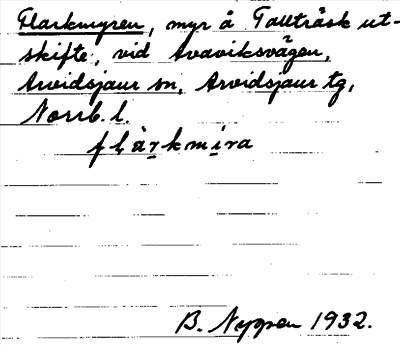 Flarkmyren, myr å Tallträsk ut-
skifte, vid Avaviksvägen,
Arvidsjaur sn, Arvidsjaur tg,
Norrb. l.
flàrkmira
B. Nygren 1932.